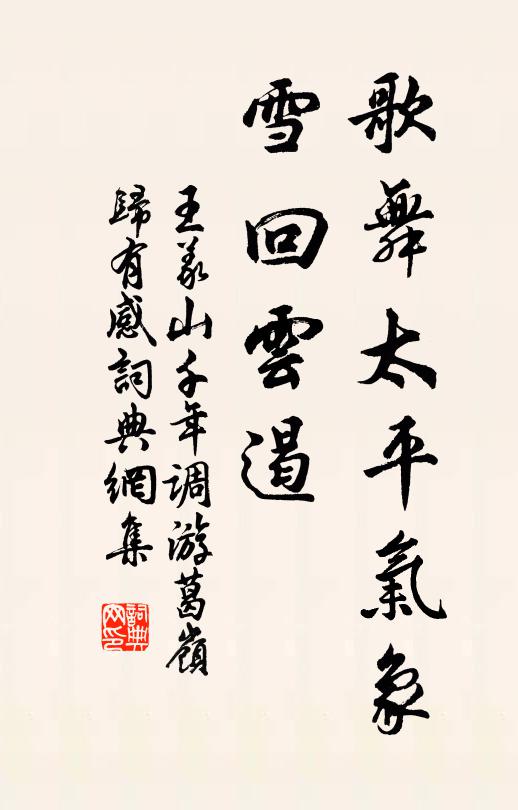 歌舞太平氣象
雪回雲遏
王义山千年调游葛嶺
歸有感詞典網集
詞典網印